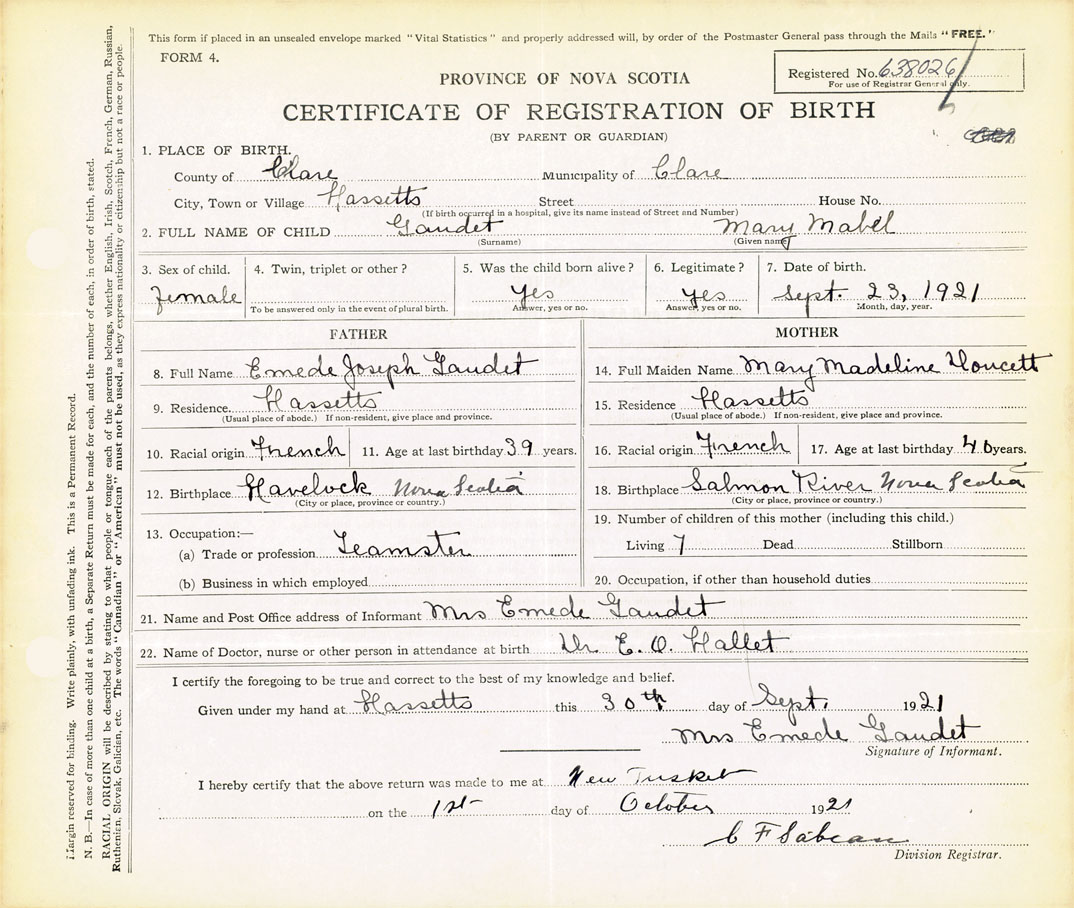 This form if placed in an unsealed envelope marked "Vital Statistics" and properly addressed will, by order of the Postmaster General pass through the Mails "FREE."
FORM 4.
PROVINCE OF NOVA SCOTIA
Registered No. 638026
For use of Registrar General only.
CERTIFICATE OF REGISTRATION OF BIRTH
(BY PARENT OR GUARDIAN)
1. PLACE OF BIRTH.
County of Clare Municipality of Clare
City, Town or Village Hassetts Street House No.
(If birth occurred in a hospital, give its name instead of Street and Number)
2. FULL NAME OF CHILD Gaudet Mary Mabel
(Surname) (Given name)
3. Sex of child. 4. Twin, triplet or other? 5. Was the child born alive? 6. Legitimate? 7. Date of birth.
Female Yes Yes Sept. 23, 1921
To be answered only in the event of plural birth. Answer, yes or no. Answer, yes or no. Month, day, year.
FATHER
8. Full Name Emede Joseph Gaudet
9. Residence Hassetts
(Usual place of abode.) If non-resident, give place and province.
10. Racial origin French 11. Age at last birthday 39 years.
12. Birthplace Havelock Nova Scotia
(City or place, province or country.)
13. Occupation:—
(a) Trade or profession Teamster
(b) Business in which employed
MOTHER
14. Full Maiden Name Mary Madeline Doucett
15. Residence Hassetts
(Usual place of abode.) If non-resident, give place and province.
16. Racial origin French 17. Age at last birthday 40 years.
18. Birthplace Salmon River Nova Scotia
(City or place, province or country.)
19. Number of children of this mother (including this child.)
Living 7 Dead Stillborn
20. Occupation, if other than household duties
21. Name and Post Office address of Informant Mrs Emede Gaudet
22. Name of Doctor, nurse or other person in attendance at birth Dr. E. O. Hallet
I certify the foregoing to be true and correct to the best of my knowledge and belief.
Given under my hand at Hassetts this 30th day of Sept. 1921
Mrs Emede Gaudet
Signature of Informant.
I hereby certify that the above return was made to me at New Tusket
on the 1st day of October 1921
C F Sabean
Division Registrar.
Margin reserved for binding. Write plainly, with unfading ink. This is a Permanent Record.
N. B.—In case of more than one child at a birth, a Separate Return must be made for each, and the number of each, in order of birth, stated.
RACIAL ORIGIN will be described by stating to what people or tongue each of the parents belongs, whether English, Irish, Scotch, French, German, Russian,
Ruthenian, Slovak, Galician, etc. The words "Canadian" or "American" must not be used, as they express nationality or citizenship but not a race or people.